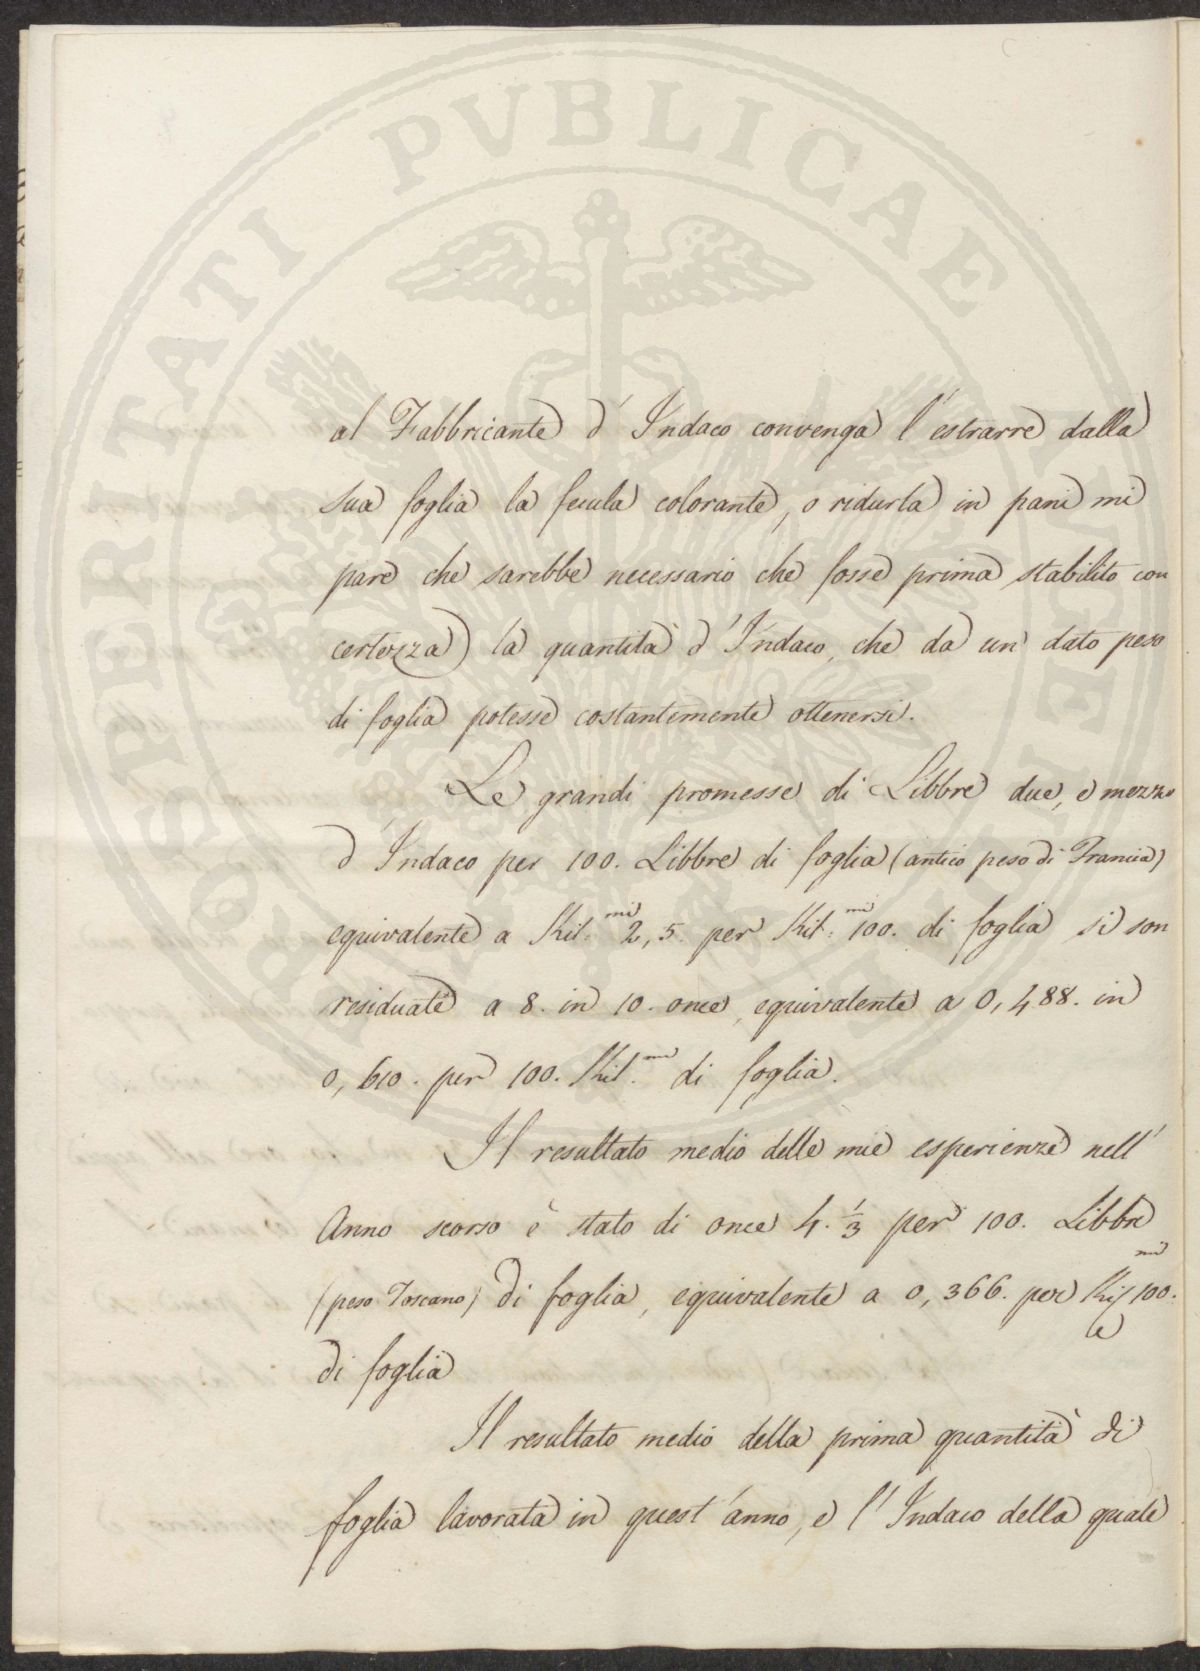 al Fabbricante d'Indaco convenga l'estrarre dalla
sua foglia la fecula colorante, o ridurla in pani mi
pare che sarebbe necessario che fosse prima stabilito con
certezza) la quantità d'Indaco, che da un dato peso
di foglia potesse costantemente ottenersi.
Le grandi promesse di Libbre due, e mezzo
d'Indaco per 100. Libbre di foglia (antico peso di Francia)
equivalente a Kil.mi 2,5. per Kil.mi 100. di foglia si son
residuate a 8. in 10. once, equivalente a 0,488. in
0,610. per 100. Kil.mi di foglia.
Il resultato medio delle mie esperienze nell'
Anno scorso è stato di once 4. 1/3 per 100. Libbre
(peso Toscano) di foglia, equivalente a 0,366. per Kil.mi 100.
di foglia
Il resultato medio della prima quantità di
foglia lavorata in quest'anno, e l'Indaco della quale
PROSPERITATI PVBLICAE AVGENDAE